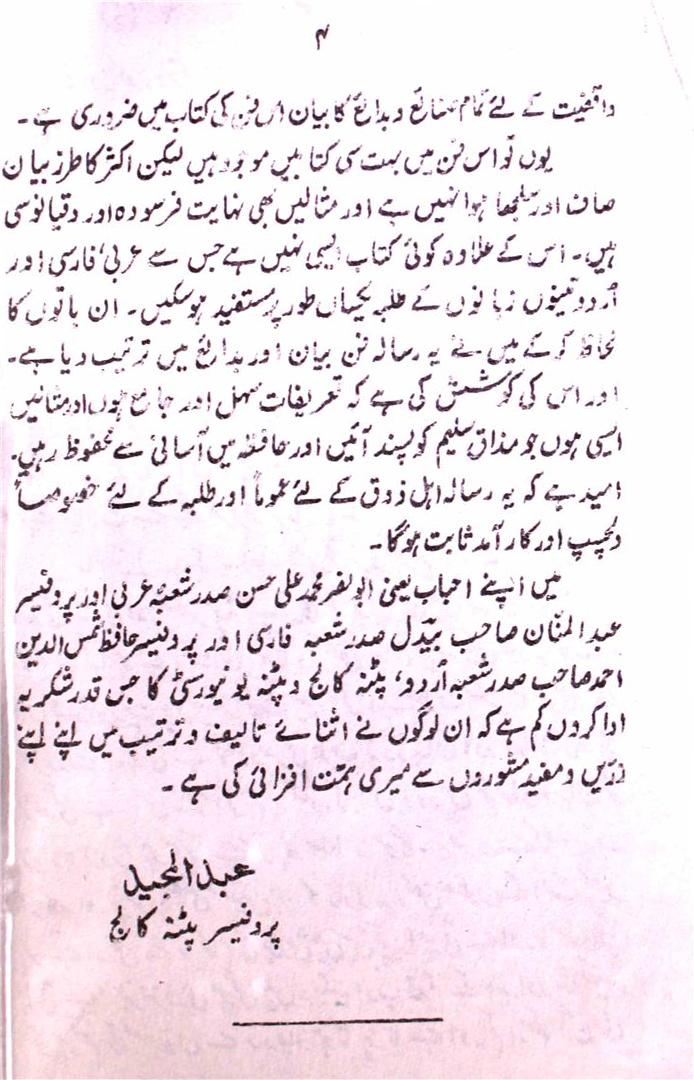 ۴
واقفیت کے لئے تمام صنائع و بدائع کا بیان اس فن کی کتاب میں ضروری ہے۔
یوں تو اس فن میں بہت سی کتابیں موجود ہیں لیکن اکثر کا طرز بیان
صاف اور سلجھا ہوا نہیں ہے اور مثالیں بھی نہایت فرسودہ اور دقیانوسی
ہیں۔ اس کے علاوہ کوئی کتاب ایسی نہیں ہے جس سے عربی، فارسی اور
اُردو تینوں زبانوں کے طلبہ یکساں طور پر مستفید ہو سکیں۔ ان باتوں کا
لحاظ کر کے میں نے یہ رسالہ فن بیان اور بدائع میں ترتیب دیا ہے۔
اور اس کی کوشش کی ہے کہ تعریفات سہل اور جامع ہوں اور مثالیں
ایسی ہوں جو مذاق سلیم کو پسند آئیں اور حافظہ میں آسانی سے محفوظ رہیں۔
امید ہے کہ یہ رسالہ اہل ذوق کے لئے عموماً اور طلبہ کے لئے خصوصاً
دلچسپ اور کارآمد ثابت ہوگا۔
میں اپنے احباب یعنی ابو نصر محمد علی حسن صدر شعبۂ عربی اور پروفیسر
عبد المنان صاحب بیدل صدر شعبہ فارسی اور پروفیسر حافظ شمس الدین
احمد صاحب صدر شعبہ اُردو، پٹنہ کالج و پٹنہ یونیورسٹی کا جس قدر شکریہ
ادا کروں کم ہے کہ ان لوگوں نے اثنائے تالیف و ترتیب میں اپنے اپنے
زریں و مفید مشوروں سے میری ہمت افزائی کی ہے۔
عبد المجید
پروفیسر پٹنہ کالج